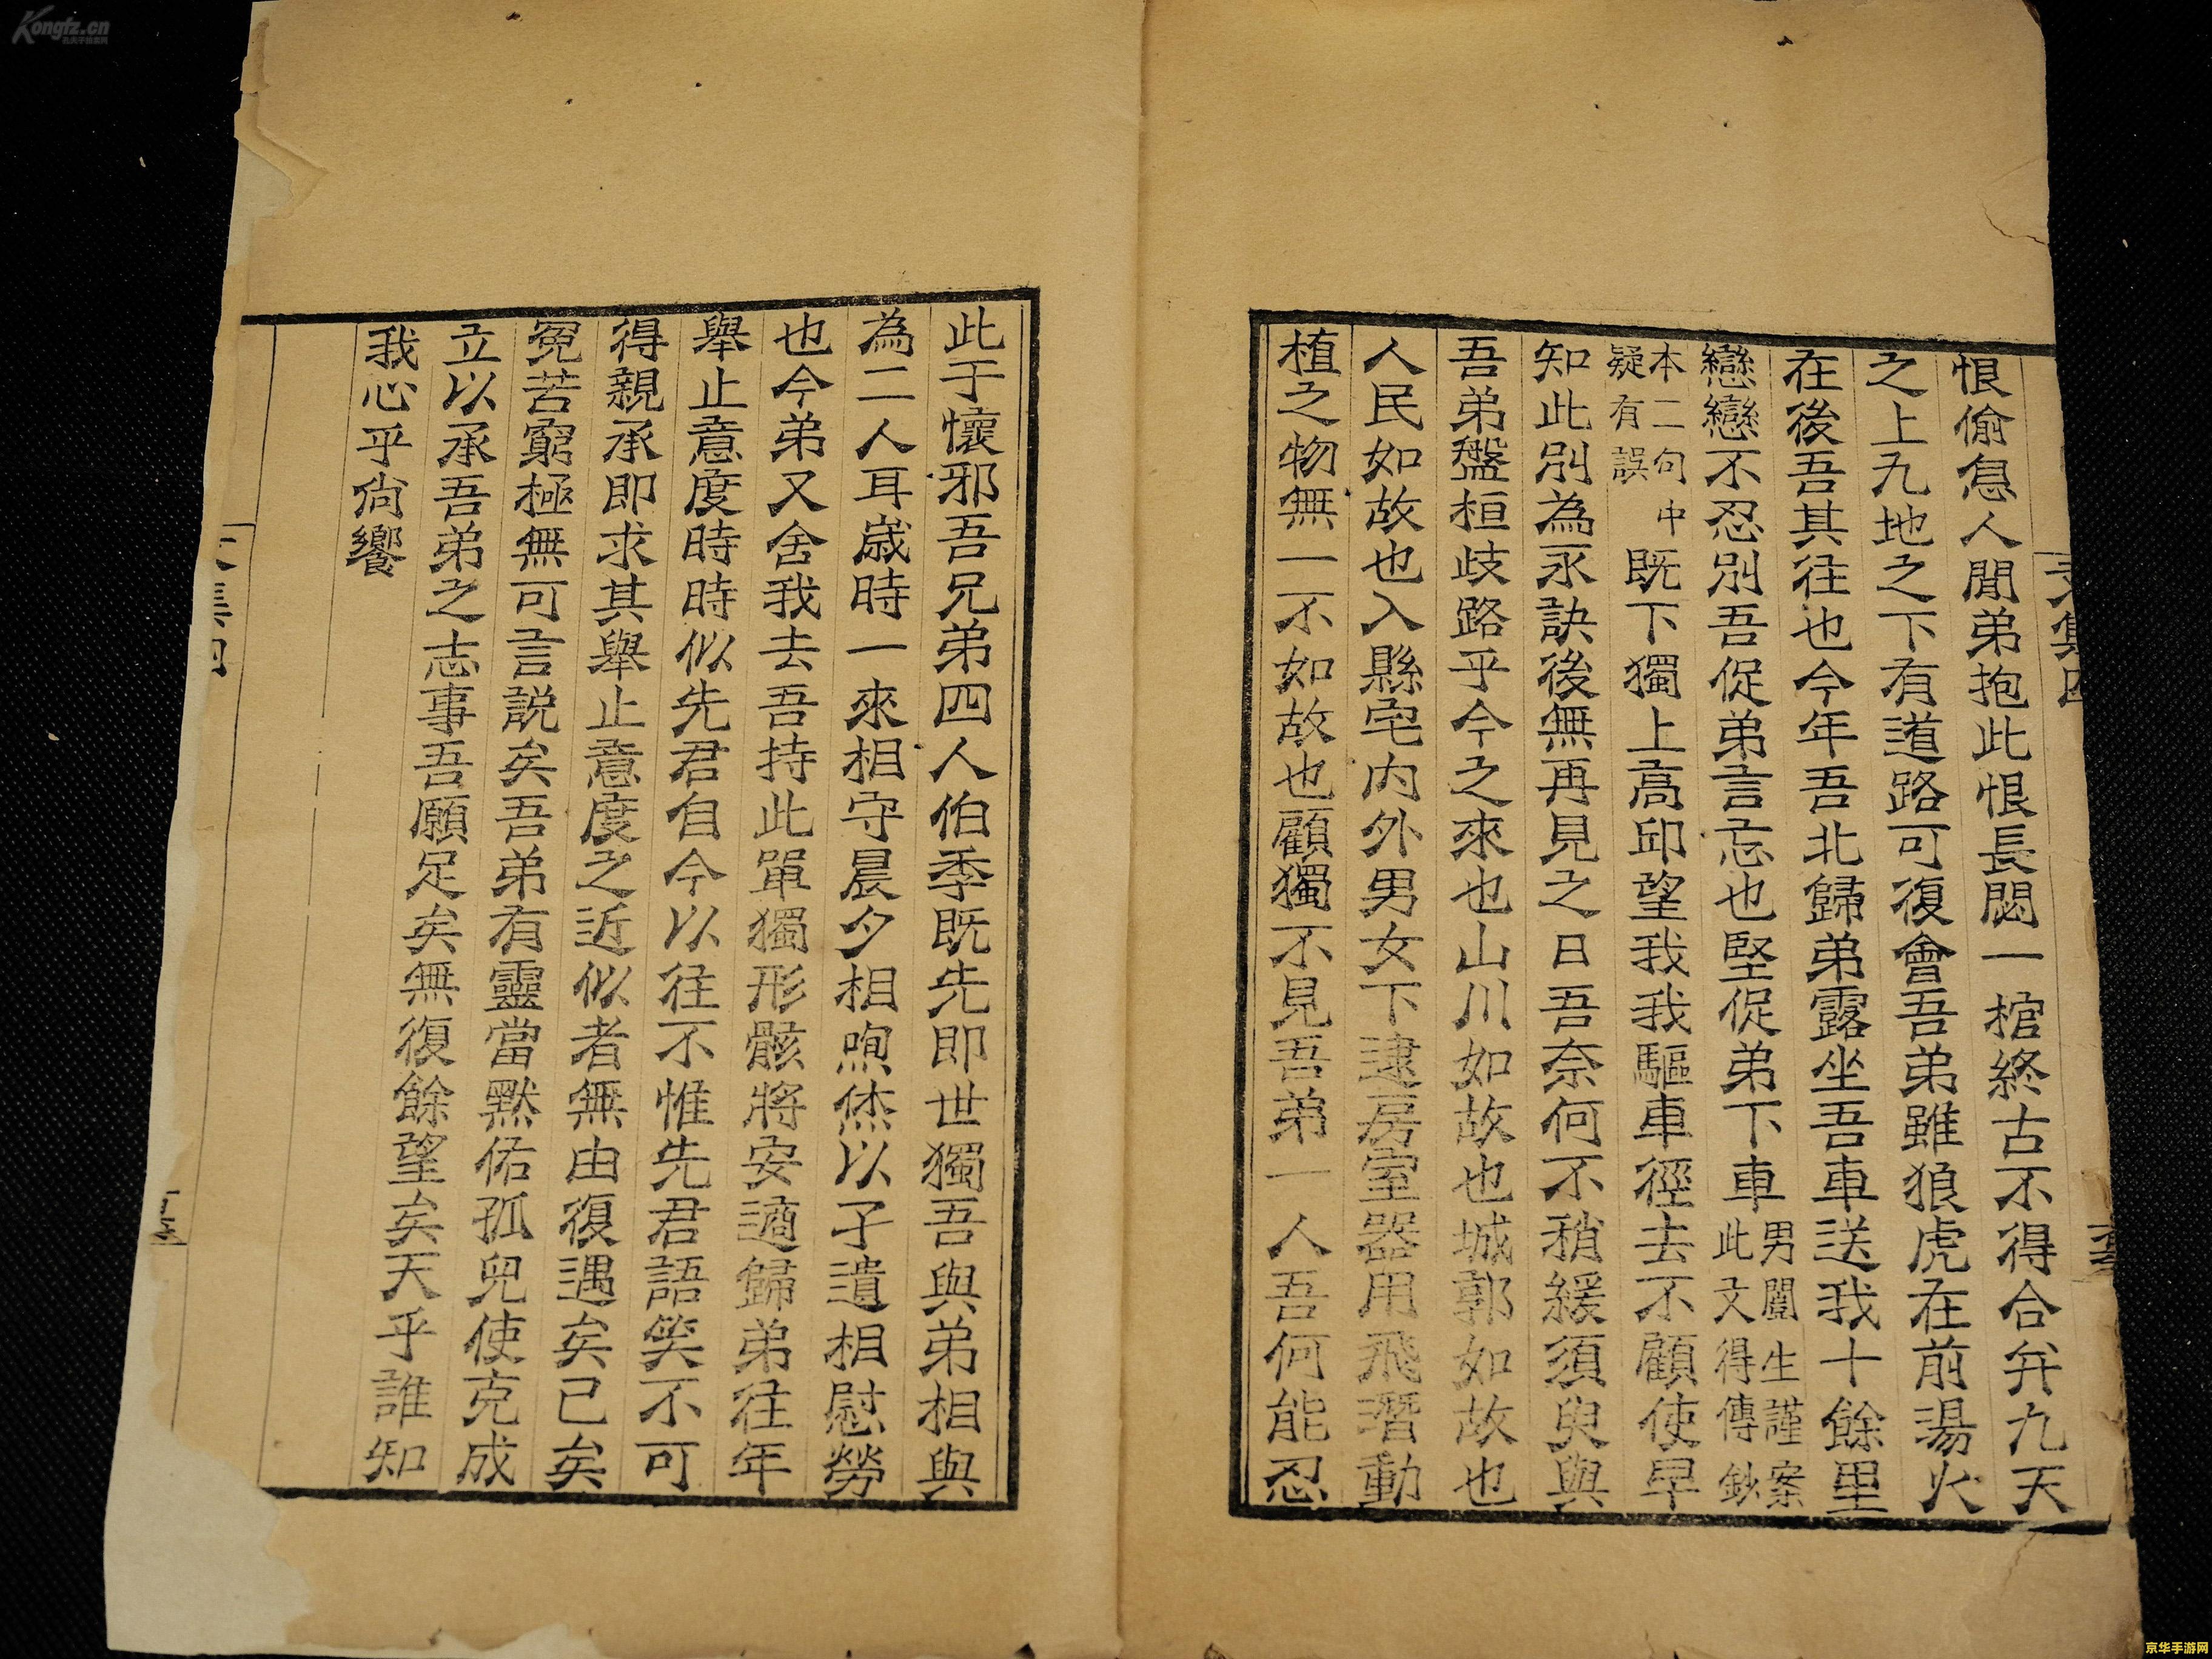 Kongfz.cn
恨偷息人閒弟抱此恨長閟一棺終古不得合弁九天
之上九地之下有道路可復會吾弟雖狼虎在前湯火
在後吾其往也今年吾北歸弟露坐吾車送我十餘里
戀戀不忍別吾促弟言忘也堅促弟下車
男闓生謹案
此文得傳鈔
本二句中
疑有誤
既下獨上高邱望我我驅車徑去不顧使早
知此別為永訣後無再見之日吾奈何不稍緩須臾與
吾弟盤桓歧路乎今之來也山川如故也城郭如故也
人民如故也入縣宅內外男女下逮房室器用飛潛動
植之物無一不如故也顧獨不見吾弟一人吾何能忍
此于懷邪吾兄弟四人伯季既先即世獨吾與弟相與
為二人耳歲時一來相守晨夕相喣烋以孑遺相慰勞
也今弟又舍我去吾持此單獨形骸將安適歸弟往年
舉止意度時時似先君自今以往不惟先君語笑不可
得親承即求其舉止意度之近似者無由復遇矣已矣
冤苦窮極無可言說矣吾弟有靈當默佑孤兒使克成
立以承吾弟之志事吾願足矣無復餘望矣天乎誰知
我心乎尙饗
京华手游网